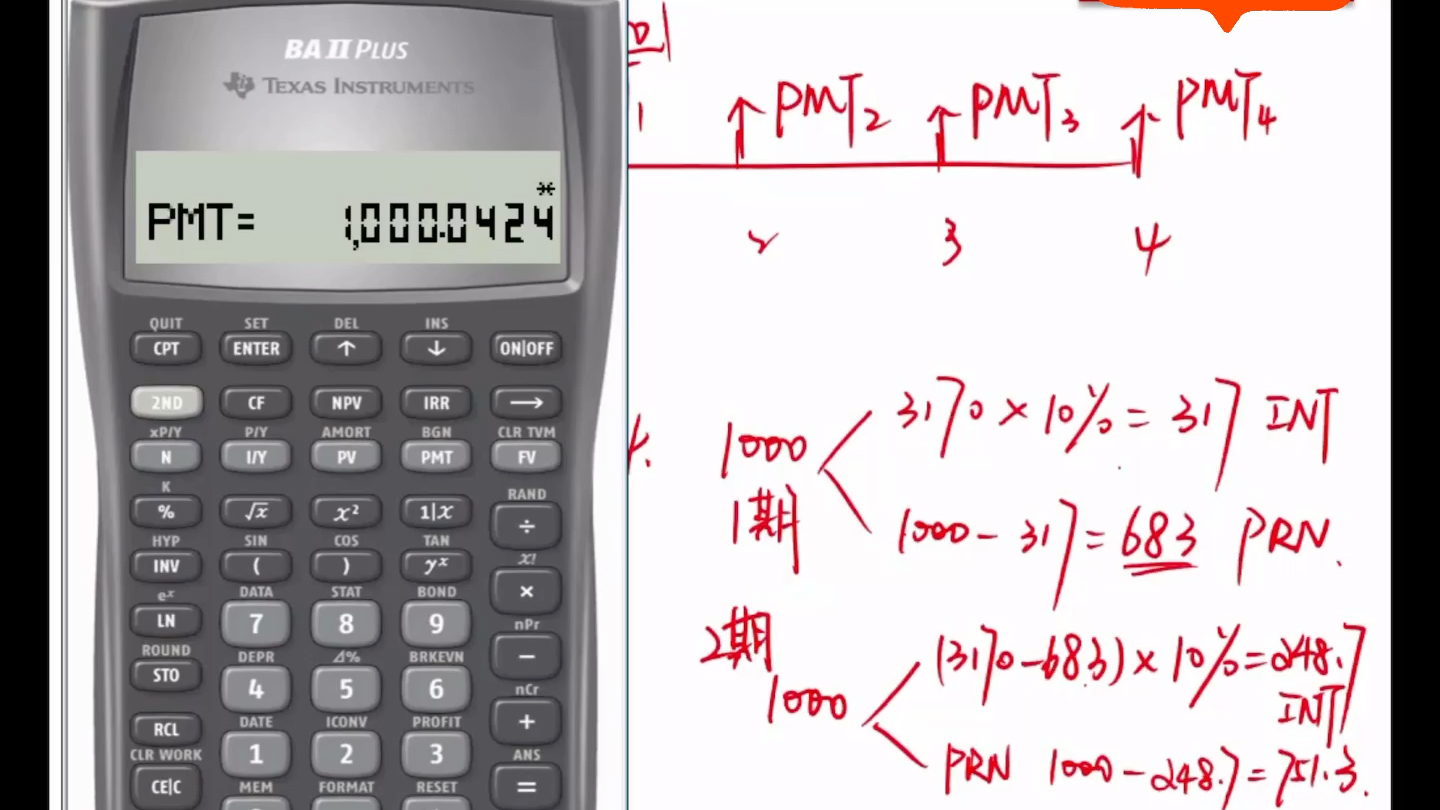 BA II PLUS
TEXAS INSTRUMENTS
*
PMT= 1,000.0424
QUIT SET DEL INS
CPT ENTER ↑ ↓ ON|OFF
2ND CF NPV IRR →
xP/Y P/Y AMORT BGN CLR TVM
N I/Y PV PMT FV
K RAND
% √x x² 1|x ÷
HYP SIN COS TAN x!
INV ( ) yˣ ×
eˣ DATA STAT BOND nPr
LN 7 8 9 −
ROUND DEPR Δ% BRKEVN nCr
STO 4 5 6 +
DATE ICONV PROFIT ANS
RCL 1 2 3 =
CLR WORK MEM FORMAT RESET
CE|C
1 PMT₂ PMT₃ PMT₄
2 3 4
1000 3170 × 10% = 317 INT
1期 1000 - 317 = 683 PRN.
2期 (3170-683) × 10% = 248.7
1000 INT
PRN 1000 - 248.7 = 751.3.